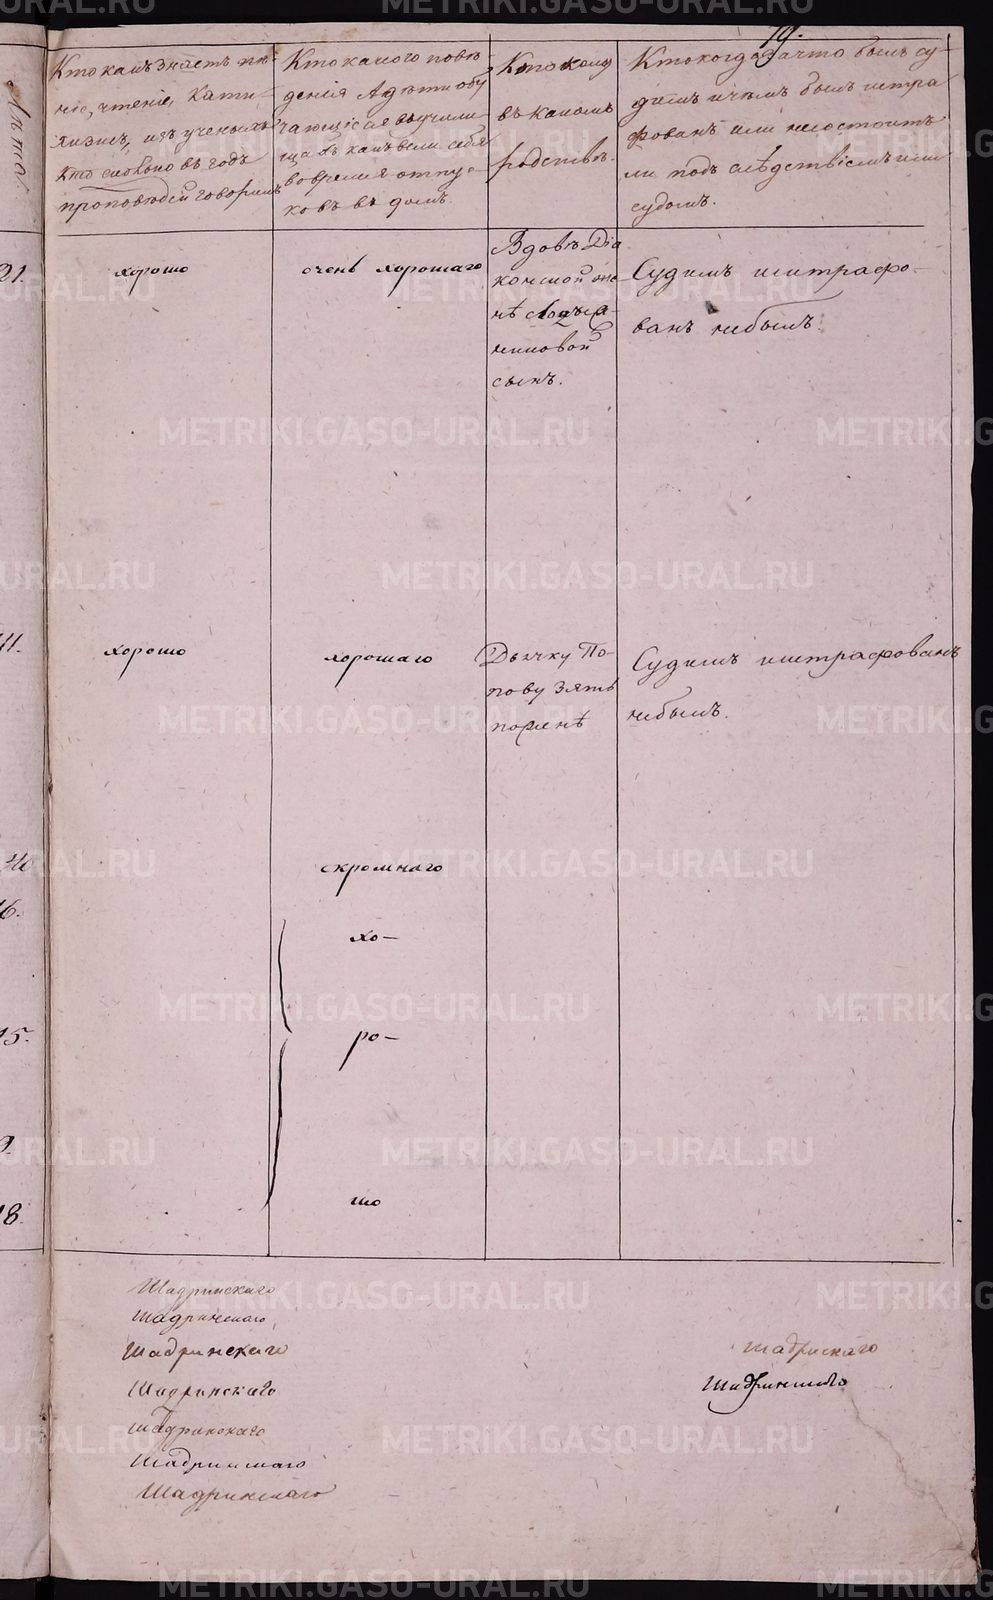 19.
Лѣта
Кто какъ знаетъ пѣ-
ніе, чтеніе, кати-
хизисъ, изъ ученыхъ
кто сколько въ годъ
проповѣдей говорилъ
Кто какого пове
денія А дѣти обу
чающіеся въ учили
ща въ какъ вели себя
во время отпус-
ковъ въ домъ.
Кто кому
въ какомъ
родствѣ.
Кто когда за что былъ су-
димъ и чѣмъ былъ штра
фованъ или не состоитъ
ли подъ слѣдствіемъ или
судомъ.
21.
хорошо
очень хорошаго
Вдовѣ Діа
конской же-
нѣ
нниковой
сынъ.
Судимъ иштрафо-
ванъ небылъ.
41.
хорошо
хорошаго
Дьячку По-
пову зять
по женѣ
Судимъ иштрафованъ
небылъ.
40
скромнаго
16.
хо-
15.
ро-
9.
шо
18.
Шадринскаго
Шадринскаго
Шадринскаго
Шадринскаго
Шадринскаго
Шадринскаго
Шадринскаго
Шадрискаго
Шадринскаго
METRIKI.GASO-URAL.RU